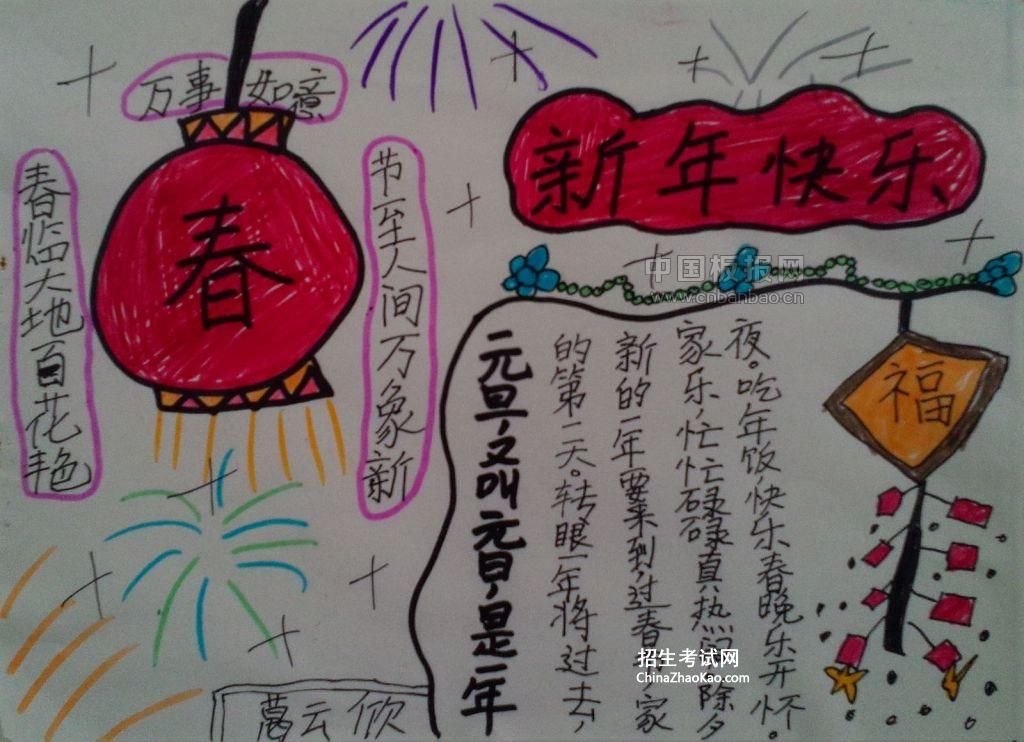 万事如意
春临大地百花艳
春
节至人间万象新
新年快乐
中国板报网
www.cnbanbao.cn
福
元旦，又叫元日，是一年
的第二天。转眼一年将过去，
新的一年要来到，过春节家
家乐，忙忙碌碌真热闹除夕
夜。吃年饭，快乐春晚乐开怀。
招生考试网
ChinaZhaoKao.com
葛云欣